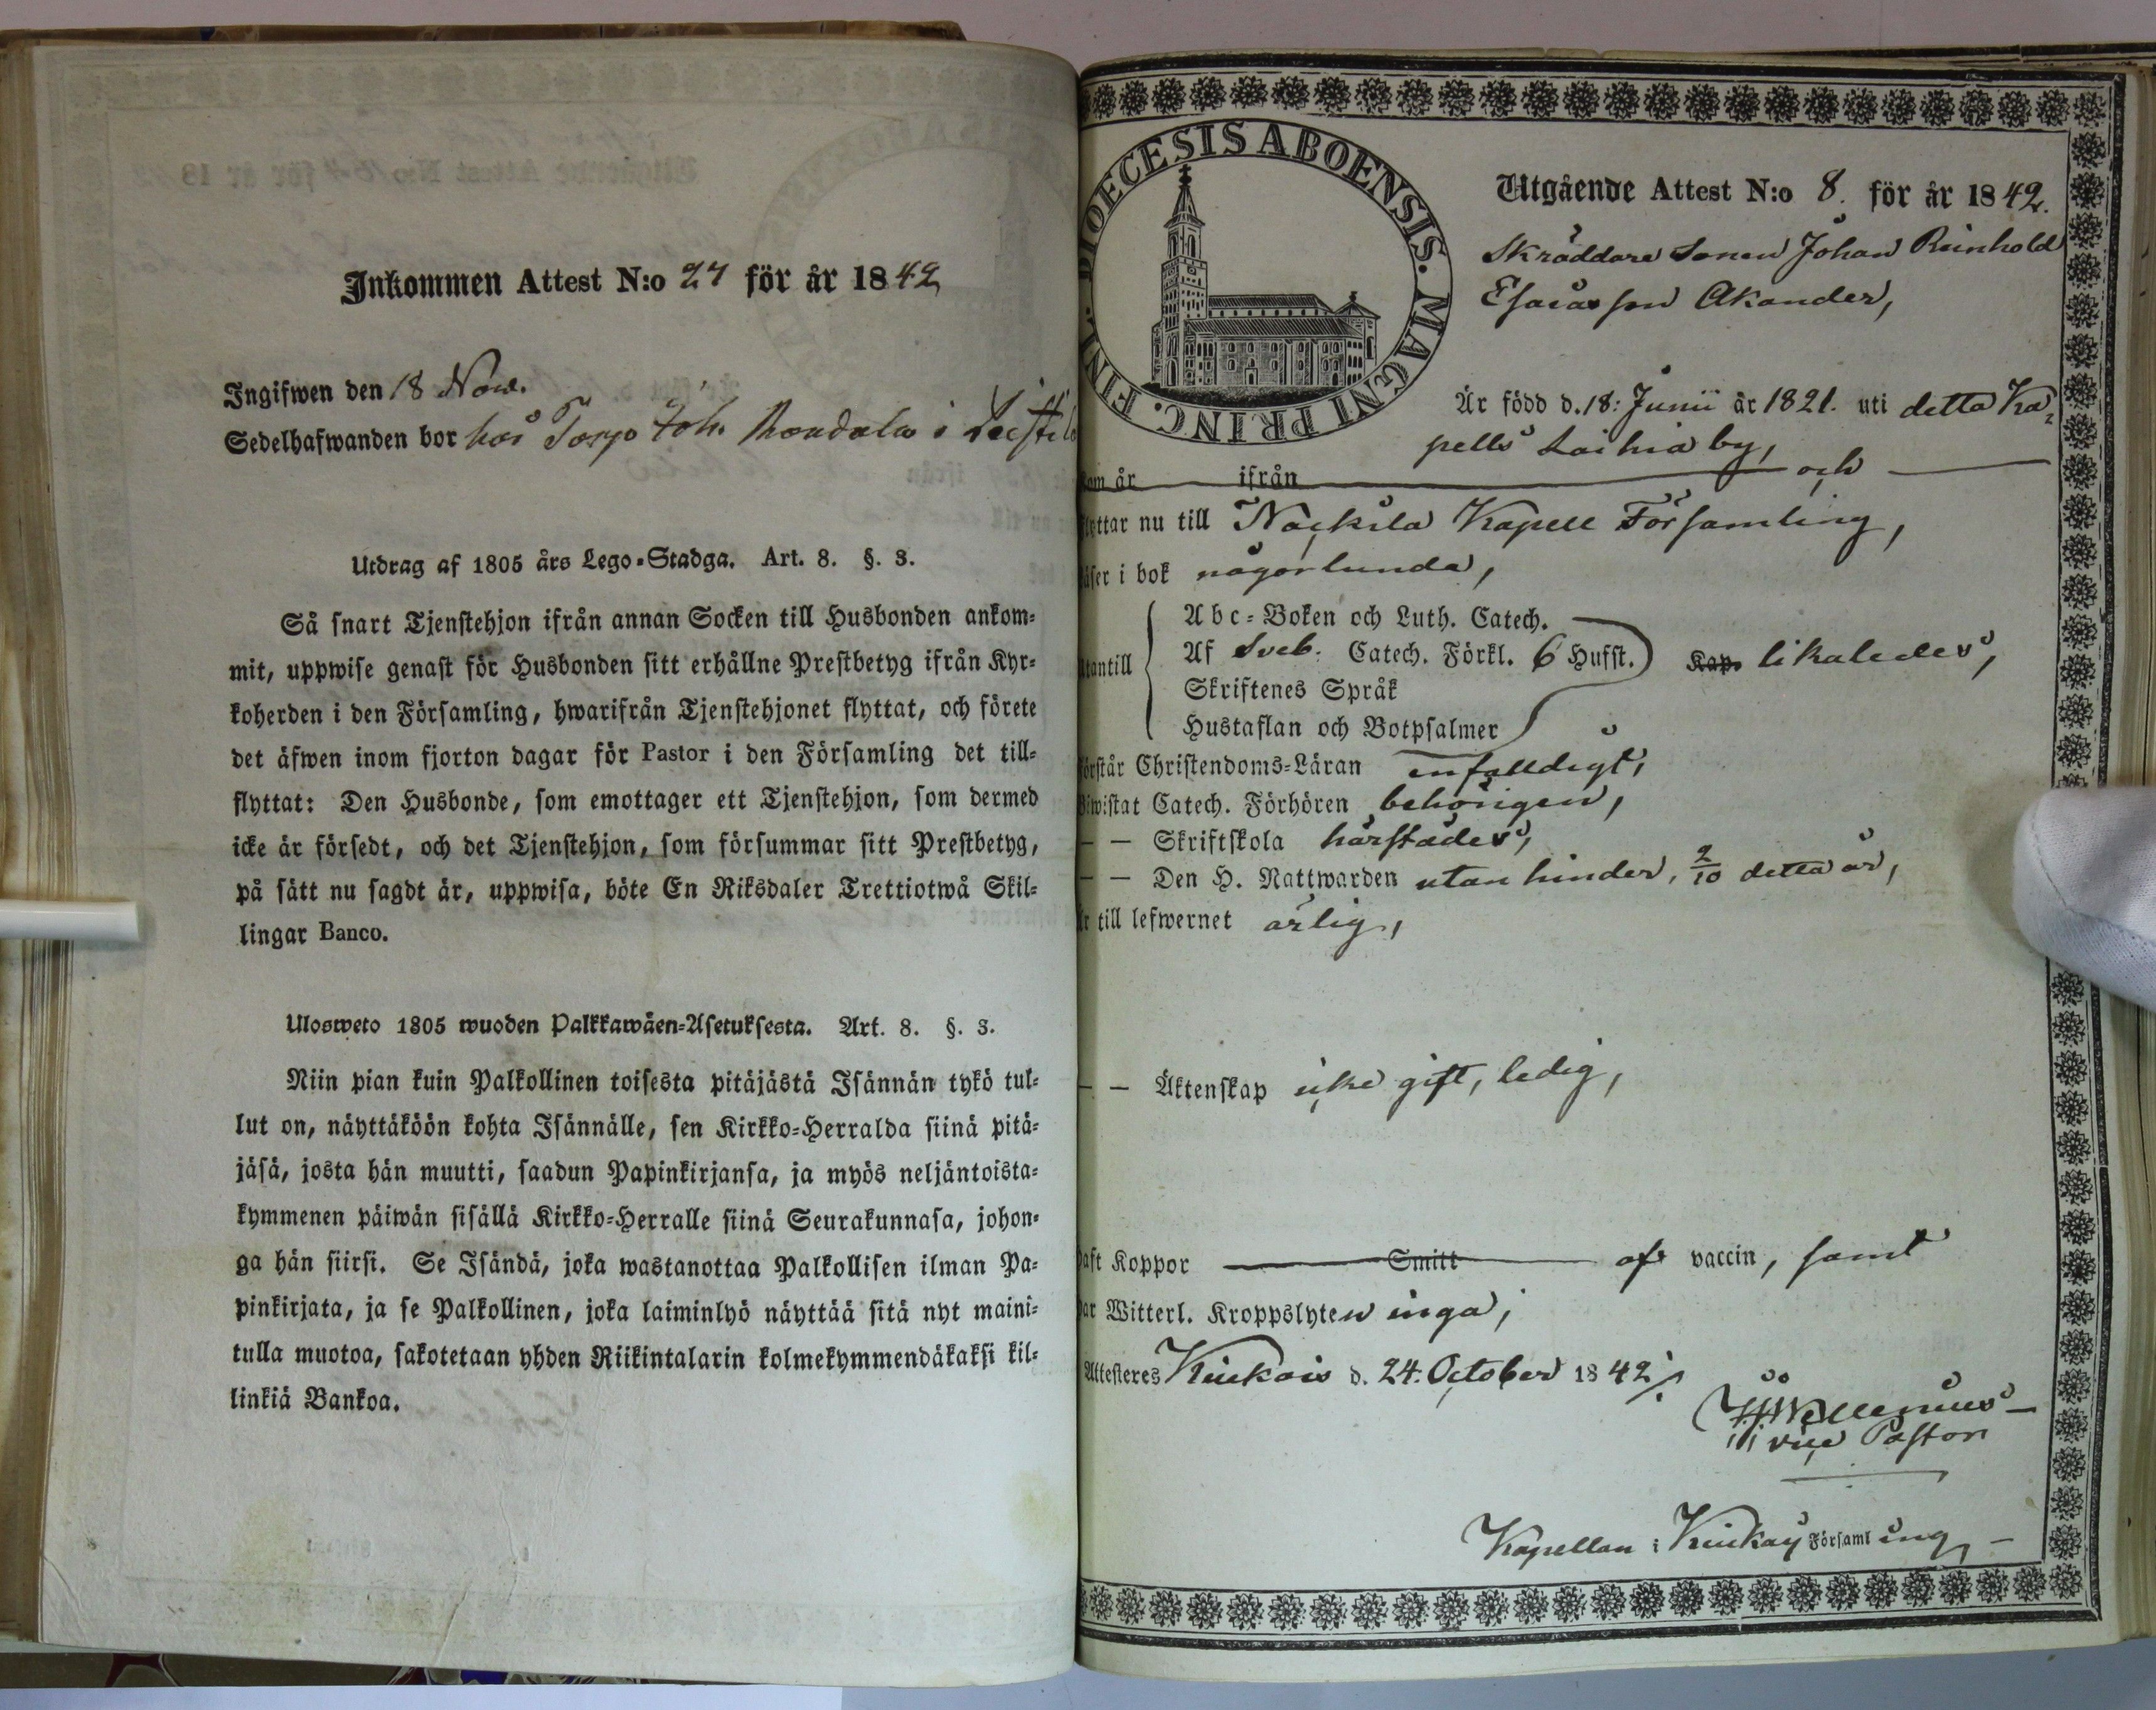 Inkommen Attest N:o 27 för år 1842
Ingifwen den 18 Nov.
Sedelhafwanden bor hos Torp. Joh. i
Utdrag af 1805 års Lego-Stadga. Art. 8. §. 3.
Så snart Tjenstehjon ifrån annan Socken till Husbonden ankom-
mit, uppwise genast för Husbonden sitt erhållne Prestbetyg ifrån Kyr-
koherden i den Församling, hwarifrån Tjenstehjonet flyttat, och förete
det äfwen inom fjorton dagar för Pastor i den Församling det till-
flyttat: Den Husbonde, som emottager ett Tjenstehjon, som dermed
icke är försedt, och det Tjenstehjon, som försummar sitt Prestbetyg,
på sätt nu sagdt är, uppwisa, böte En Riksdaler Trettiotwå Skil-
lingar Banco.
Ulosweto 1805 wuoden Palkkawäen-Asetuksesta. Art. 8. §. 3.
Niin pian kuin Palkollinen toisesta pitäjästä Isännän tykö tul-
lut on, näyttäköön kohta Isännälle, sen Kirkko-Herralda siinä pitä-
jäsä, josta hän muutti, saadun Papinkirjansa, ja myös neljäntoista-
kymmenen päiwän sisällä Kirkko-Herralle siinä Seurakunnasa, johon-
ga hän siirsi. Se Isändä, joka wastanottaa Palkollisen ilman Pa-
pinkirjata, ja se Palkollinen, joka laiminlyö näyttää sitä nyt maini-
tulla muotoa, sakotetaan yhden Riikintalarin kolmekymmendäkaksi kil-
linkiä Bankoa.
DIOECESIS ABOENSIS. MAGNI PRINC. FINL.
Utgående Attest N:o 8. för år 1842.
Skräddare Sonen Johan Reinhold
Esaiasson Akander,
Är född d. 18: Junii år 1821. uti detta Ka-
pells Laihia by,
kom år ifrån och
flyttar nu till Nackila Kapell Församling,
läser i bok någorlunda,
Abc-Boken och Luth. Catech.
Utantill Af Sveb. Catech. Förkl. 6 Hufst. Kap. likaledes,
Skriftenes Språk
Hustaflan och Botpsalmer
förstår Christendoms-Läran enfalldigt,
Biwistat Catech. Förhören behörigen,
— — Skriftskola härstädes,
— — Den H. Nattwarden utan hinder, 2/10 detta år,
Är till lefwernet ärlig,
— — Äktenskap icke gift, ledig,
haft Koppor Smitt af vaccin, samt
har Witterl. Kroppslyten inga;
Attesteres Kiukais d. 24. October 1842
vice Pastor
Kapellan i Kiukais Församling